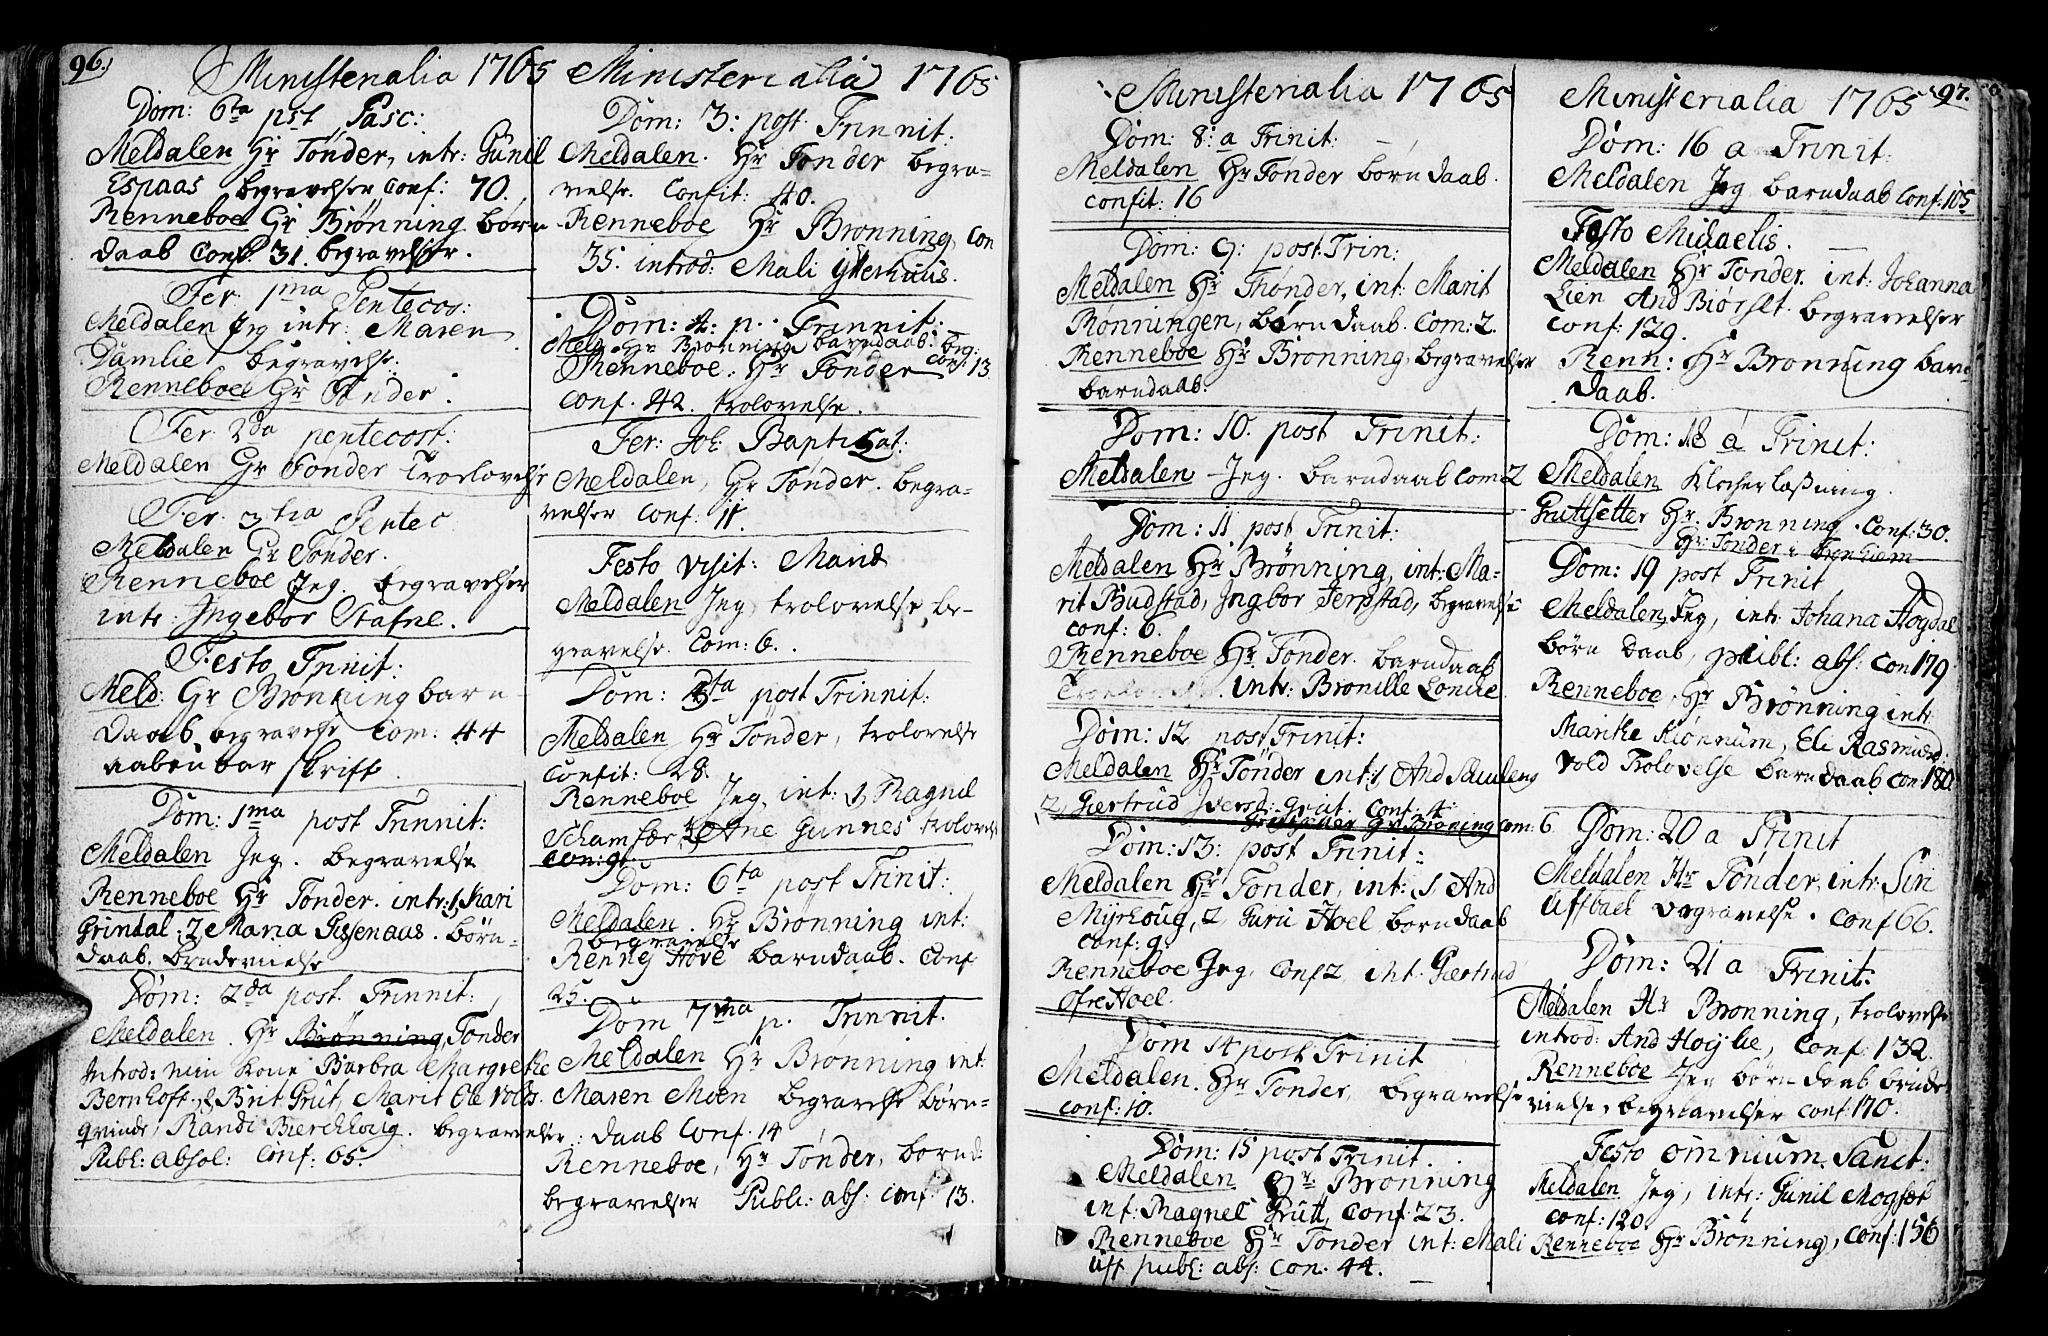 96.
Ministerialia 1765
Dom: 6ta pst Pasc:
Meldalen Hr Tønder, intr: Gunil
Espaas begravelser conf: 70.
Renneboe Hr Brønning børn
daab Conf. 31. begravelser.
Fer. 1ma Pentecos:
Meldalen Jeg intr: Maren
Damlie begravelse.
Renneboe Hr Tønder.
Fer. 2da pentecost:
Meldalen Hr Tønder Trolovelse
Fer. 3tia Pentec
Meldalen Hr Tønder.
Renneboe Jeg. begravelser
intr: Ingebor Stafne.
Festo Trinit:
Meld: Hr Brønning barn
daab begravelse Com: 44
aabenbar skrift.
Dom: 1ma post Trinnit:
Meldalen Jeg. begravelse
Renneboe Hr Tønder. intr: 1, Kari
Grindal. 2, Maria Gissenaas. børn-
daab. brudevielse
Dom: 2da post. Trinnit:
Meldalen. Hr Brønning, Tønder
Introd: min kone Barbra Margrethe
Bernhoft, & Brit Grut, Marit Ole Volds.
qvinde, Randi Bierchhoug. begravelser
Publ: absol: Conf: 65.
Ministerialia 1765
Dom: 3: post. Trinnit:
Meldalen. Hr Tønder begra-
velse. Confit: 40.
Renneboe Hr Brønning, con
35. introd: Mali Ytterhuus.
Dom: 4: p. Trinnit:
Meld. Hr Brønning barndaab. beg:
conf: 13
Renneboe. Hr Tønder
conf. 42. trolovelse.
Fer: Joh: Baptisat:
Meldalen, Hr Tønder. begra-
velser conf. 11.
Festo visit: Mariæ
Meldalen Jeg, trolovelse, be-
gravelse. Com: 6.
Dom: 5ta post Trinnit:
Meldalen Hr Tønder, trolovelse
Confit: 28.
Renneboe Jeg, int: 1, Ragnil
Schamfær, 2, Ane Gunnes trolovelse
con: 9.
Dom: 6ta post Trinit:
Meldalen. Hr Brønning int:
begravelse
Renny Hove barndaab. Conf
25.
Dom 7ma p. Trinnit.
Meldalen Hr Brønning int:
Maren Moen begravelse børn-
daab Conf. 14
Renneboe, Hr Tønder, barnd:
begravelser Publ: abs: conf: 13.
Ministerialia 1765
Dom: 8: a Trinit:
Meldalen Hr Tønder børn daab.
confit: 16
Dom: 9: post. Trin:
Meldalen Hr Thønder, int: Marit
Rønningen, børn daab. Com: 2.
Renneboe Hr Brønning, begravelser
barndaab.
Dom: 10. post Trinit:
Meldalen Jeg. barndaab com: 2
Dom: 11 post Trinit:
Meldalen Hr Brønning, int: Ma-
rit Budstad, Ingbor Jerpstad, begravelse
conf: 6.
Renneboe Hr Tønder. barndaab
intr: Bronille Lonite.
Dom: 12 post Trinit:
Meldalen Hr Tønder int: 1, And Skulens
2, Giertrud Jversd: Grut. Conf: 4.
Grutsetter Hr Brøning com: 6
Dom: 13: post Trinit:
Meldalen Hr Tønder, int: 1 And
Myrhoug, 2 Guru Hoel børn daab
conf: 9.
Renneboe Jeg, conf 2 int. Giertrud
Øfre Hoel.
Dom 14 post Trinit
Meldalen. Hr Tønder, begravelse
conf: 10.
Dom: 15 post Trinit.
Meldalen Hr Brønning
int: Ragnel Grutt, conf: 23.
Renneboe Hr Tønder int: Mali
Uff publ: abs: con. 44.
Ministerialia 1765
97.
Dom: 16 a Trinit:
Meldalen Jeg barndaab conf: 105
Festo Michaelis.
Meldalen Hr Tønder. int: Johanna
Lien And Biørset. begravelser
conf: 129.
Renn: Hr Brønning barn
daab.
Dom: 18 á Trinit:
Meldalen Klocher læsning.
Gruttsetter Hr: Brønning. Conf: 30.
Hr: Tønder i Tronhiem
Dom: 19 post Trinit
Meldalen, Jeg, intr: Johana Hogdal
børn daab, publ: abs: con 179
Renneboe, Hr Brønning intr:
Marite Kiønnum, Eli Rasmusd:
Vold Trolovelse barn daab con: 180
Dom: 20 a Trinit
Meldalen Hr Tønder, intr: Siri
Uffbaek begravelse. conf 66.
Dom: 21 a Trinit:
Meldalen Hr Brønning, trolovelse
introd: And Hoylie, Conf: 132.
Renneboe Jeg børn daab brude
vielse, begravelser conf: 170.
Festo omnium Sanct:
Meldalen Jeg, intr: Gunil Mogset
conf: 120.
Renneboe Hr Brønning, conf: 156